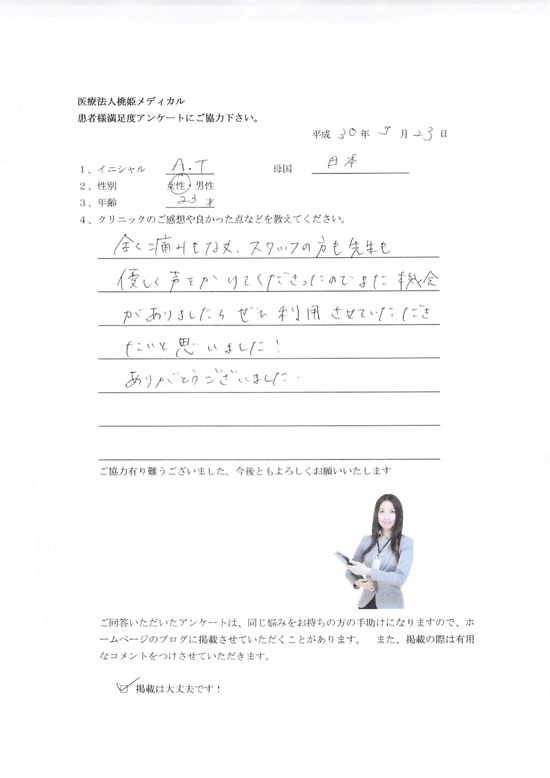 医療法人桃姫メディカル
患者様満足度アンケートにご協力下さい。
平成 30 年 9 月 23 日
1、イニシャル A.T 母国 日本
2、性別 女性・男性
3、年齢 23 才
4、クリニックのご感想や良かった点などを教えてください。
全く痛みもなく、スタッフの方も先生も
優しく声をかけてくださったのでまた機会
がありましたらぜひ利用させていただき
たいと思いました!
ありがとうございました.
ご協力有り難うございました。今後ともよろしくお願いいたします
ご回答いただいたアンケートは、同じ悩みをお持ちの方の手助けになりますので、ホ
ームページのブログに掲載させていただくことがあります。 また、掲載の際は有用
なコメントをつけさせていただきます。
掲載は大丈夫です!